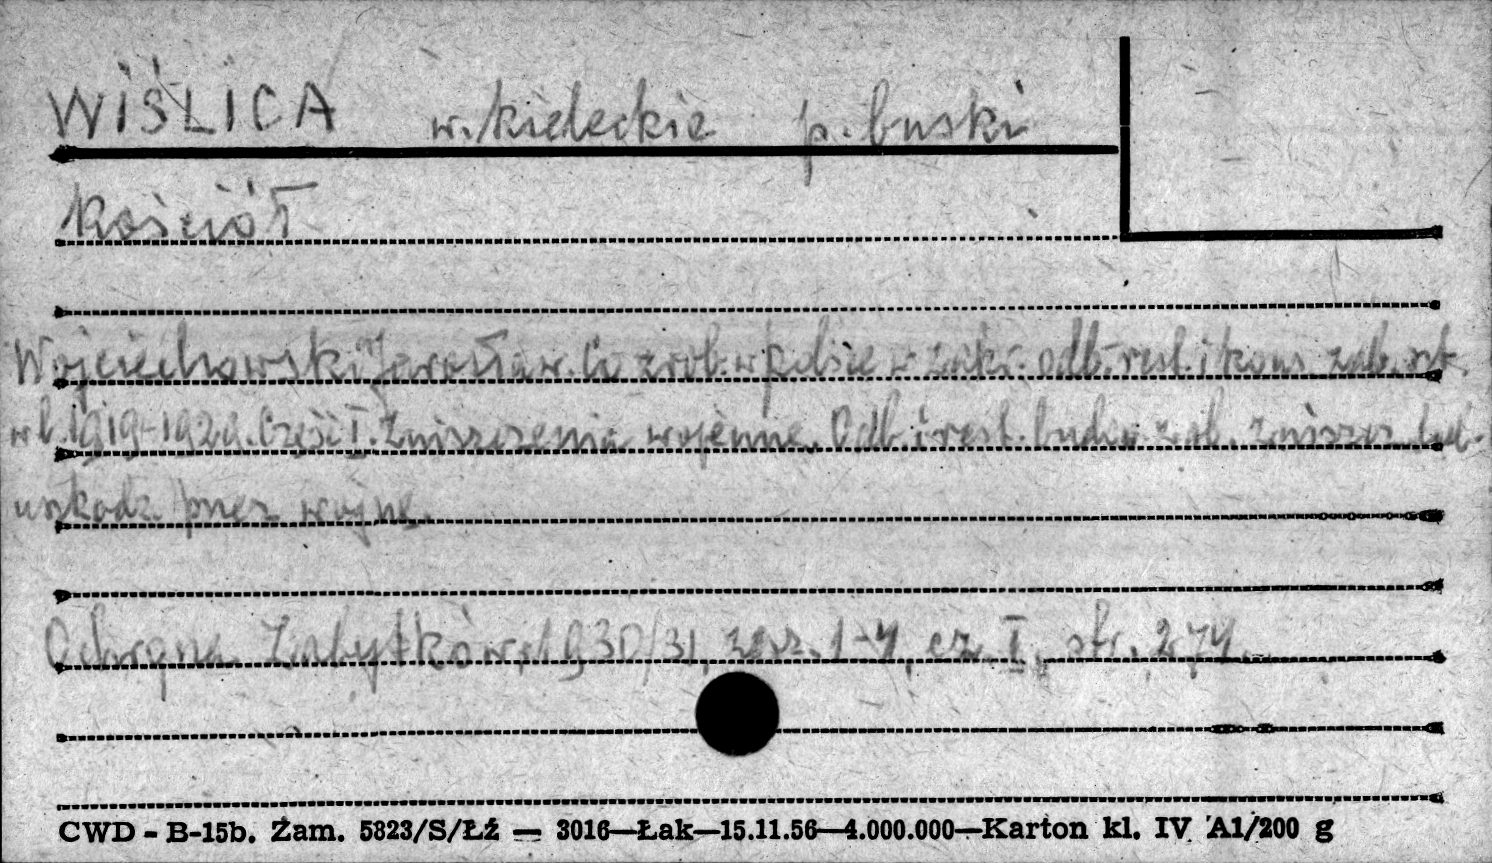 WIŚLICA w. kieleckie p. buski
Kościół
Wojciechowski Jarosław. Co zrob. w Polsce w zakr. odb. rest. i kons. zab. szt.
w l. 1919-1929. Część I. Zniszczenia wojenne. Odb. i rest. budow. zab. zniszcz. lub.
uszkodz. przez wojnę.
Ochrona Zabytków, 1930/31, zesz. 1-4, cz. I, str. 274.
CWD - B-15b. Zam. 5823/S/Łź — 3016—Łak—15.11.56—4.000.000—Karton kl. IV A1/200 g